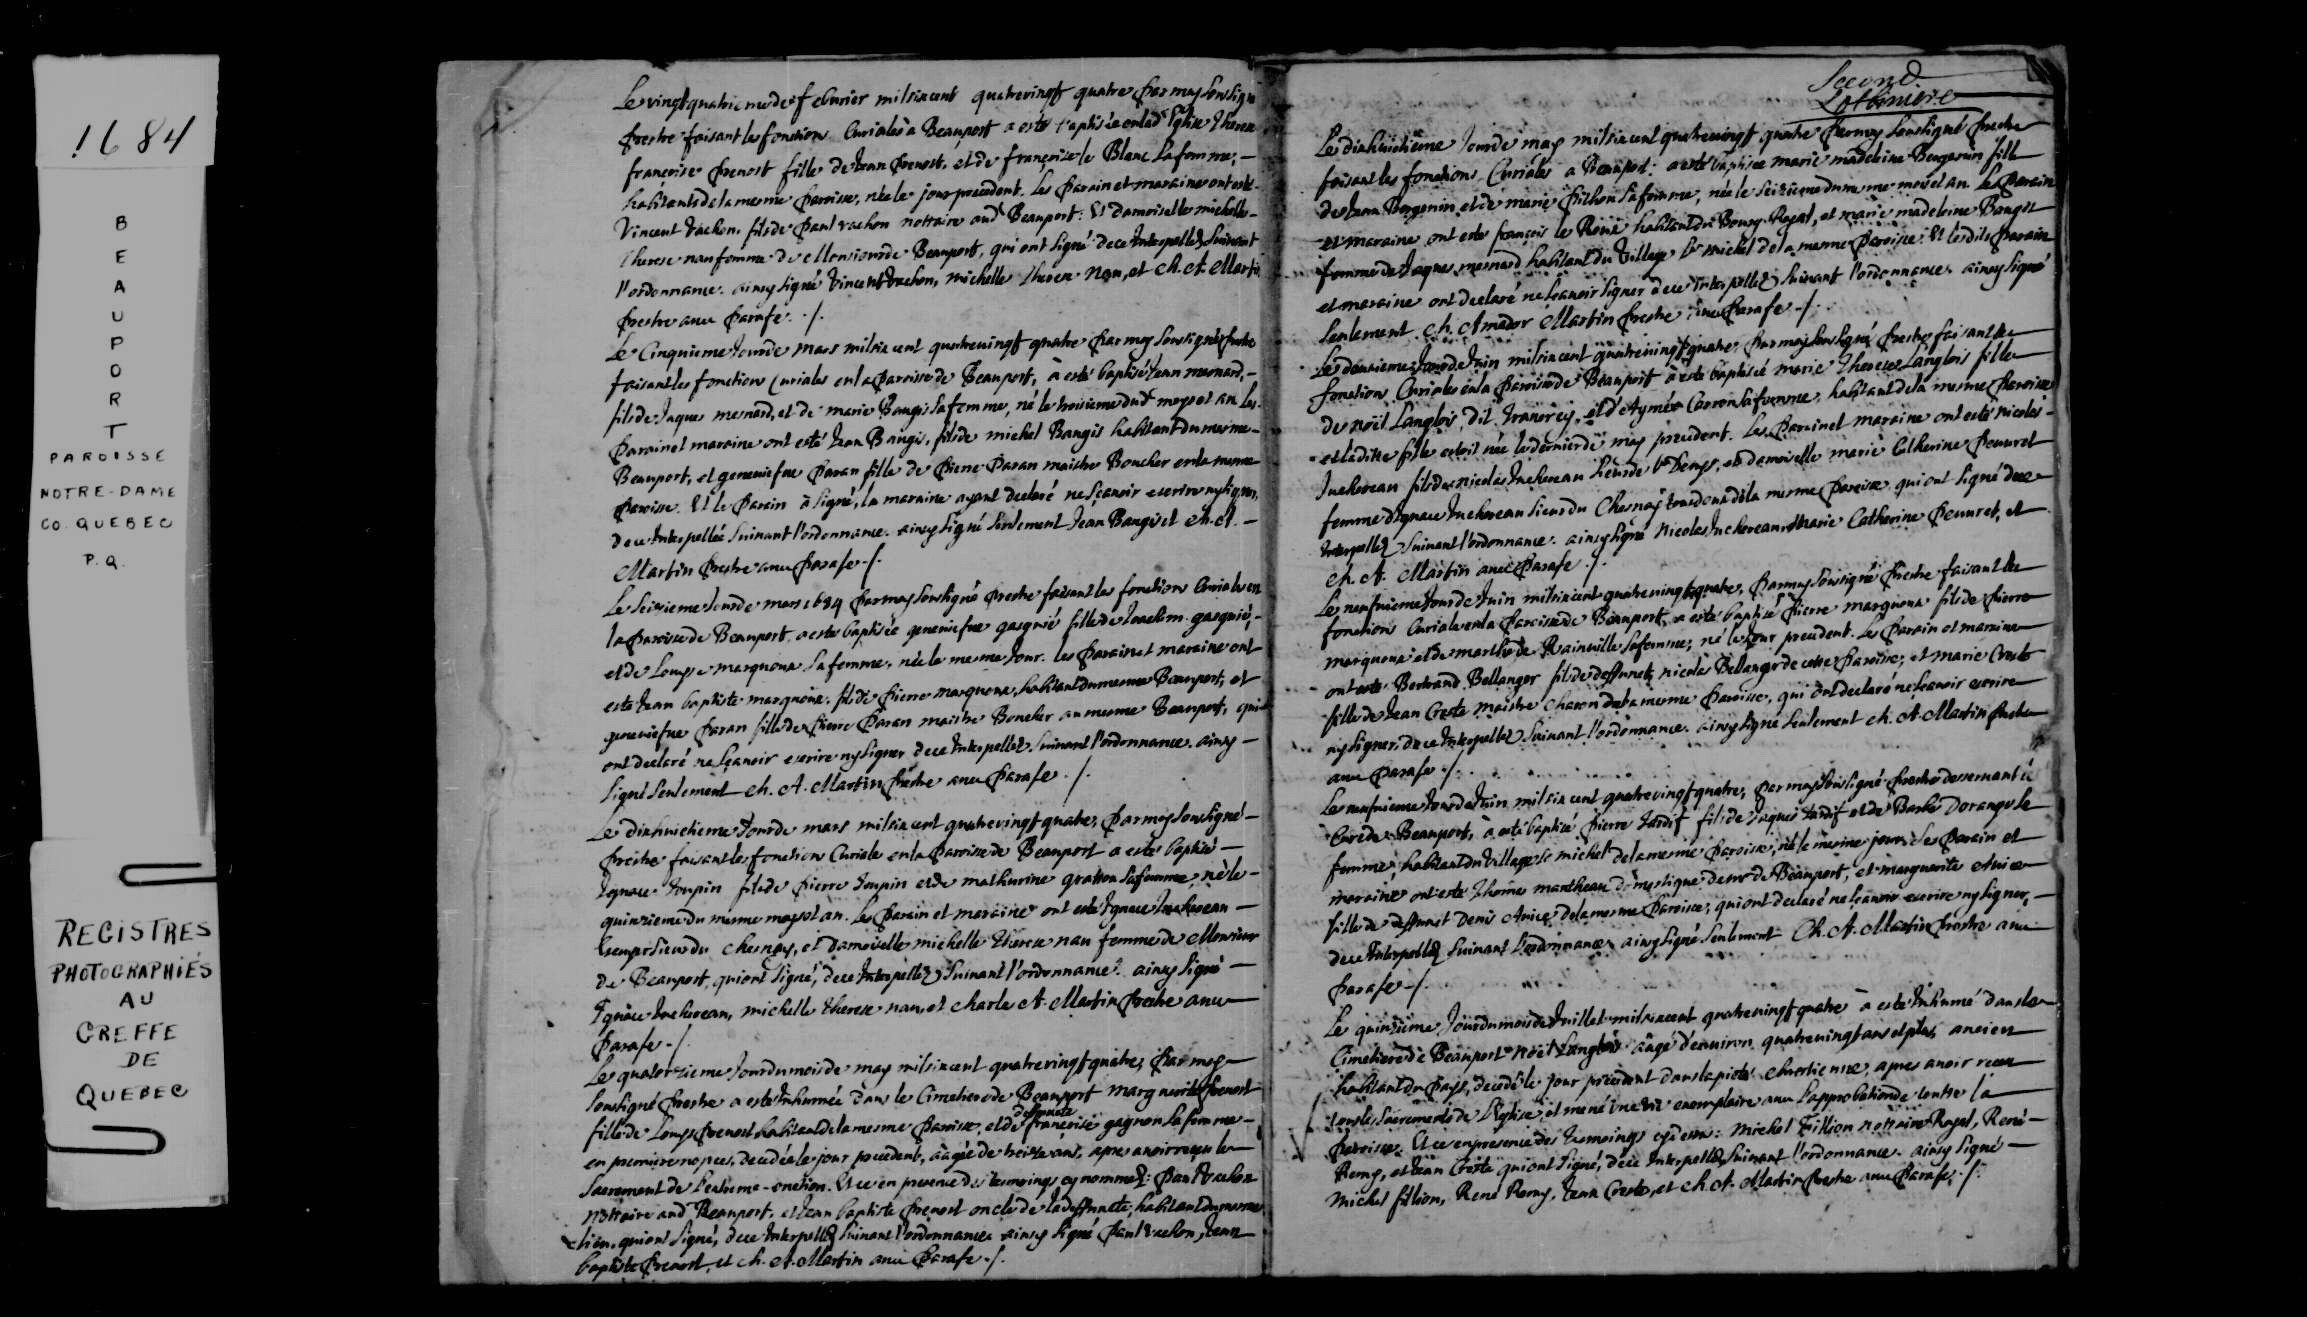 1684
BEAUPORT
PAROISSE
NOTRE-DAME
CO. QUEBEC
P.Q.
REGISTRES
PHOTOGRAPHIÉS
AU
GREFFE
DE
QUEBEC
Le vingt quatrieme de febvrier mil six cent quatrevingt quatre par moy soussigné
prestre faisant les fonctions Curiales a Beauport a esté baptisée en lad. Eglise Therese
françoise prevost fille de Jean prevost, et de françoise le Blanc sa femme,
habitants de la mesme paroisse, née le jour precedent. Les parain et maraine ont esté
Vincent Vachon, fils de paul vachon nottaire aud. Beauport: Et Damoiselle michelle
Therese nau femme de Monsieur de Beauport, qui ont signé de ce Interpellez suivant
l'ordonnance. ainsy signé vincent vachon, michelle Therese Nau, et Ch. A. Martin
prestre avec parafe ./.
Le Cinquieme Jour de mars mil six cent quatrevingt quatre par moy soussigné prestre
faisant les fonctions Curiales en la paroisse de Beauport, à esté baptisé Jean mesnard,
fils de Jaques mesnard, et de marie Bangis sa femme, né le troisieme dud. moys et an. Les
parain et maraine ont esté Jean Bangis, fils de michel Bangis habitant du mesme
Beauport, et geneviefve paran fille de pierre paran maistre Boucher en la mesme
paroisse. Et le parain à signé, la maraine ayant declaré ne sçavoir escrire ny signer,
de ce Interpellée suivant l'ordonnance. ainsy signé seulement Jean Bangis et Ch. A.
Martin prestre avec parafe ./.
Le seizieme Jour de mars 1684 par moy soussigné prestre faisant les fonctions Curiales en
la paroisse de Beauport a esté baptisée geneviefve gasguié fille de Joachim gasguié,
et de Louyse marquoux sa femme, née le mesme Jour. les parain et maraine ont
esté Jean baptiste marquoux, fils de pierre marquoux, habitant du mesme Beauport, et
geneviefve paran fille de pierre paran maistre Boucher au mesme Beauport, qui
ont declaré ne sçavoir escrire ny signer de ce Interpellez suivant l'ordonnance. ainsy
signé seulement Ch. A. Martin prestre avec parafe ./.
Le dixhuictieme Jour de mars mil six cent quatrevingt quatre, par moy soussigné
prestre faisant les fonctions Curiales en la paroisse de Beauport a esté baptisé
Ignace Toupin fils de pierre Toupin et de mathurine gratton sa femme, né le
quinzieme du mesme moys et an. Les parain et maraine ont esté Ignace Juchereau
sieur du Chesnay, et Damoiselle michelle Therese nau femme de Monsieur
de Beauport, qui ont signé, de ce Interpellez suivant l'ordonnance. ainsy signé
Ignace Juchereau, michelle Therese nau, et Charles A. Martin prestre avec
parafe ./.
Le quatorzieme Jour du mois de may mil six cent quatrevingt quatre, par moy
soussigné prestre a esté Inhumée dans le Cimetiere de Beauport marguerite prevost
fille de Louys prevost habitant de la mesme paroisse, et de deffuncte françoise gagnon sa femme
en premiere nopces, decedée le jour precedent, aagée de treize ans, apres avoir receu le
sacrement de l'extreme-onction. Et ce en presence des temoings cy nommez: paul Vachon
nottaire aud. Beauport, et Jean baptiste prevost oncle de la deffuncte, habitant du mesme
lieu, qui ont signé, de ce Interpellez suivant l'ordonnance ainsy signé paul vachon, Jean
baptiste prevost, et Ch. A. Martin avec parafe ./.
Second.
Lotbiniere
Le dixhuictieme Jour de may mil six cent quatrevingt quatre par moy soussigné prestre
faisant les fonctions Curiales a Beauport: a esté baptisée marie madeleine Bergevin fille
de Jean Bergevin, et de marie pichon sa femme, née le seizieme du mesme mois et an. Les parain
et maraine ont esté françois le Roux habitant du Bourg Royal, et marie madeleine Bangis
femme de Jaques mesnard habitant du Village St michel de la mesme paroisse. Et lesdits parain
et maraine ont declaré ne sçavoir signer de ce Interpellez suivant l'ordonnance. ainsy signé
seulement Ch. Amador Martin prestre avec parafe ./.
Le deuxieme Jour de Juin mil six cent quatrevingt quatre, par moy soussigné prestre faisant les
fonctions Curiales en la paroisse de Beauport à esté baptisée marie Therese Langlois fille
de noël Langlois, dit Traversy, et d'Aymée Caron sa femme, habitant de la mesme paroisse
et la ditte fille estoit née le dernier de may precedent. Les parain et maraine ont esté nicolas
Juchereau fils de nicolas Juchereau sieur de St Denys, et demoiselle marie Catherine peuvret
femme d'Ignace Juchereau sieur du Chesnay tous deux de la mesme paroisse qui ont signé de ce
Interpellez suivant l'ordonnance. ainsy signé nicolas Juchereau, Marie Catherine peuvret, et
Ch. A. Martin avec parafe ./.
Le neufvieme Jour de Juin mil six cent quatrevingt quatre, par moy soussigné prestre faisant les
fonctions Curiales en la paroisse de Beauport, a esté baptisé pierre marquoux fils de pierre
marquoux et de marthe de Rainville sa femme, né le Jour precedent. Les parain et maraine
ont esté Bertrand Bellanger fils de deffunct nicolas Bellanger de cette paroisse, et marie Creste
fille de Jean Creste maistre charon de la mesme paroisse, qui ont declaré ne sçavoir escrire
ny signer, de ce Interpellez suivant l'ordonnance. ainsy signé seulement Ch. A. Martin prestre
avec parafe ./.
Le neufvieme Jour de Juin mil six cent quatrevingt quatre, par moy soussigné prestre desservant la
Cure de Beauport, à esté baptisé pierre Tardif fils de Jaques Tardif et de Barbe Dorange sa
femme, habitant du village St michel de la mesme paroisse, né le mesme jour. Les parain et
maraine ont esté Thomas mantheau domestique de mr de Beauport, et marguerite Avice
fille de deffunct Denis Avice, de la mesme paroisse, qui ont declaré ne sçavoir escrire ny signer,
de ce Interpellez suivant l'ordonnance, ainsy signé seulement Ch. A. Martin prestre avec
parafe ./.
Le quinzieme Jour du mois de Juillet mil six cent quatrevingt quatre à esté Inhumé dans le
Cimetiere de Beauport Noël Langlois aagé d'environ quatrevingt ans et plus, ancien
habitant du pays, decedé le jour precedent dans la pieté chrestienne, apres avoir receu
tous les sacrements de l'Eglise, et mené une vie exemplaire avec l'approbation de toutte la
paroisse. Et ce en presence des temoings cy dessous: Michel Fillion nottaire Royal, René
Remy, et Jean Creste qui ont signé, de ce Interpellez suivant l'ordonnance. ainsy signé
Michel fillion, René Remy, Jean Creste, et Ch. A. Martin prestre avec parafe ./.